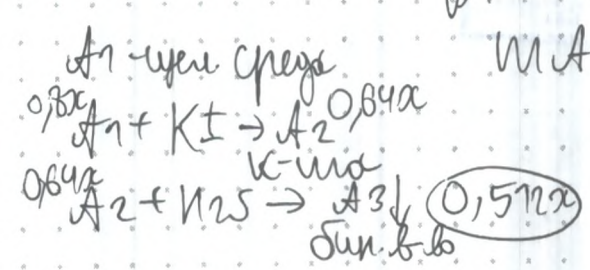 A1 - щел. среда
ША
0,8x A1 + KI → A2 0,64x
к-та
0,64x A2 + H2S → A3↓ 0,512x
бин. в-во